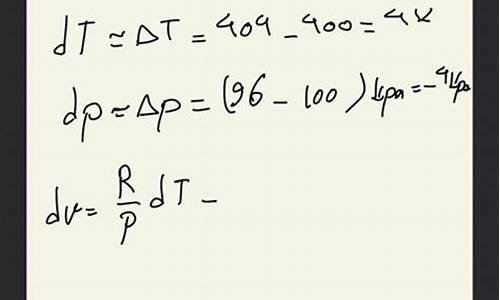 dT ≃ ΔT = 404 - 400 = 4K
dp ≃ Δp = (96 - 100) kpa = -4kpa
dv = R/p dT -